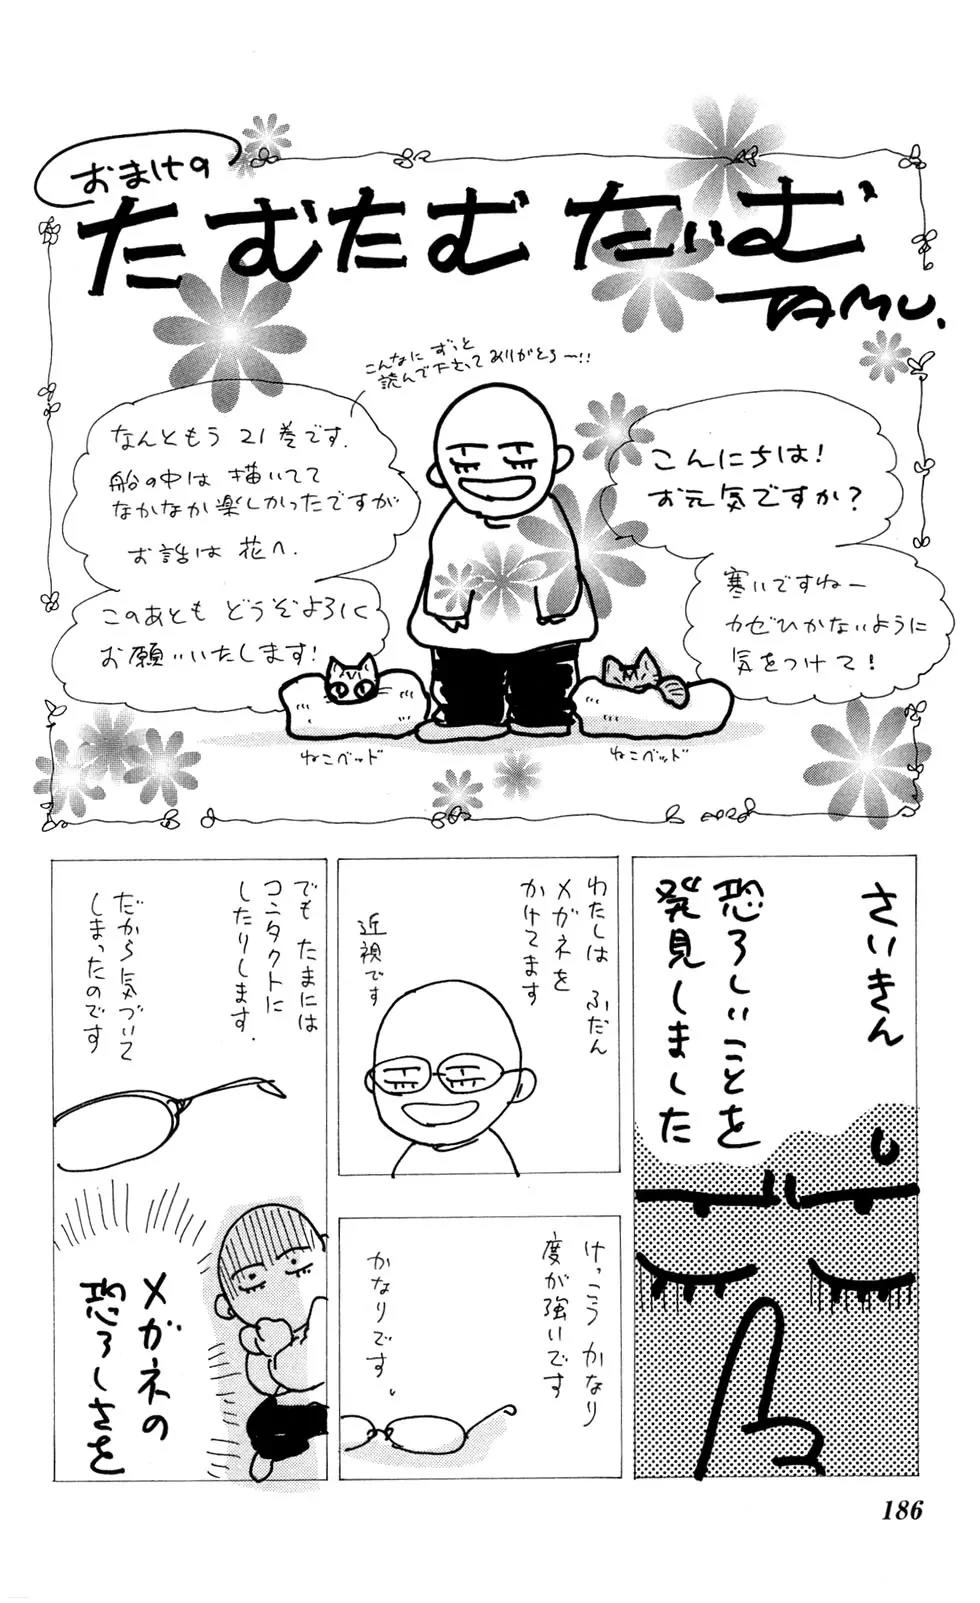 おまけの
たむたむたいむ
TAMU.
こんにちは!
お元気ですか?
寒いですねー
カゼひかないように
気をつけて!
こんなに ずっと
読んで下さってありがとうー!!
なんともう 21巻です.
船の中は 描いてて
なかなか楽しかったですが
お話は 花へ.
このあとも どうぞよろしく
お願いいたします!
ねこベッド
ねこベッド
さいきん
恐ろしいことを
発見しました
わたしは ふだん
メガネを
かけてます
近視です
けっこう かなり
度が強いです
かなりです。
でも たまには
コンタクトに
したりします.
だから気づいて
しまったのです
メガネの
恐ろしさを
186